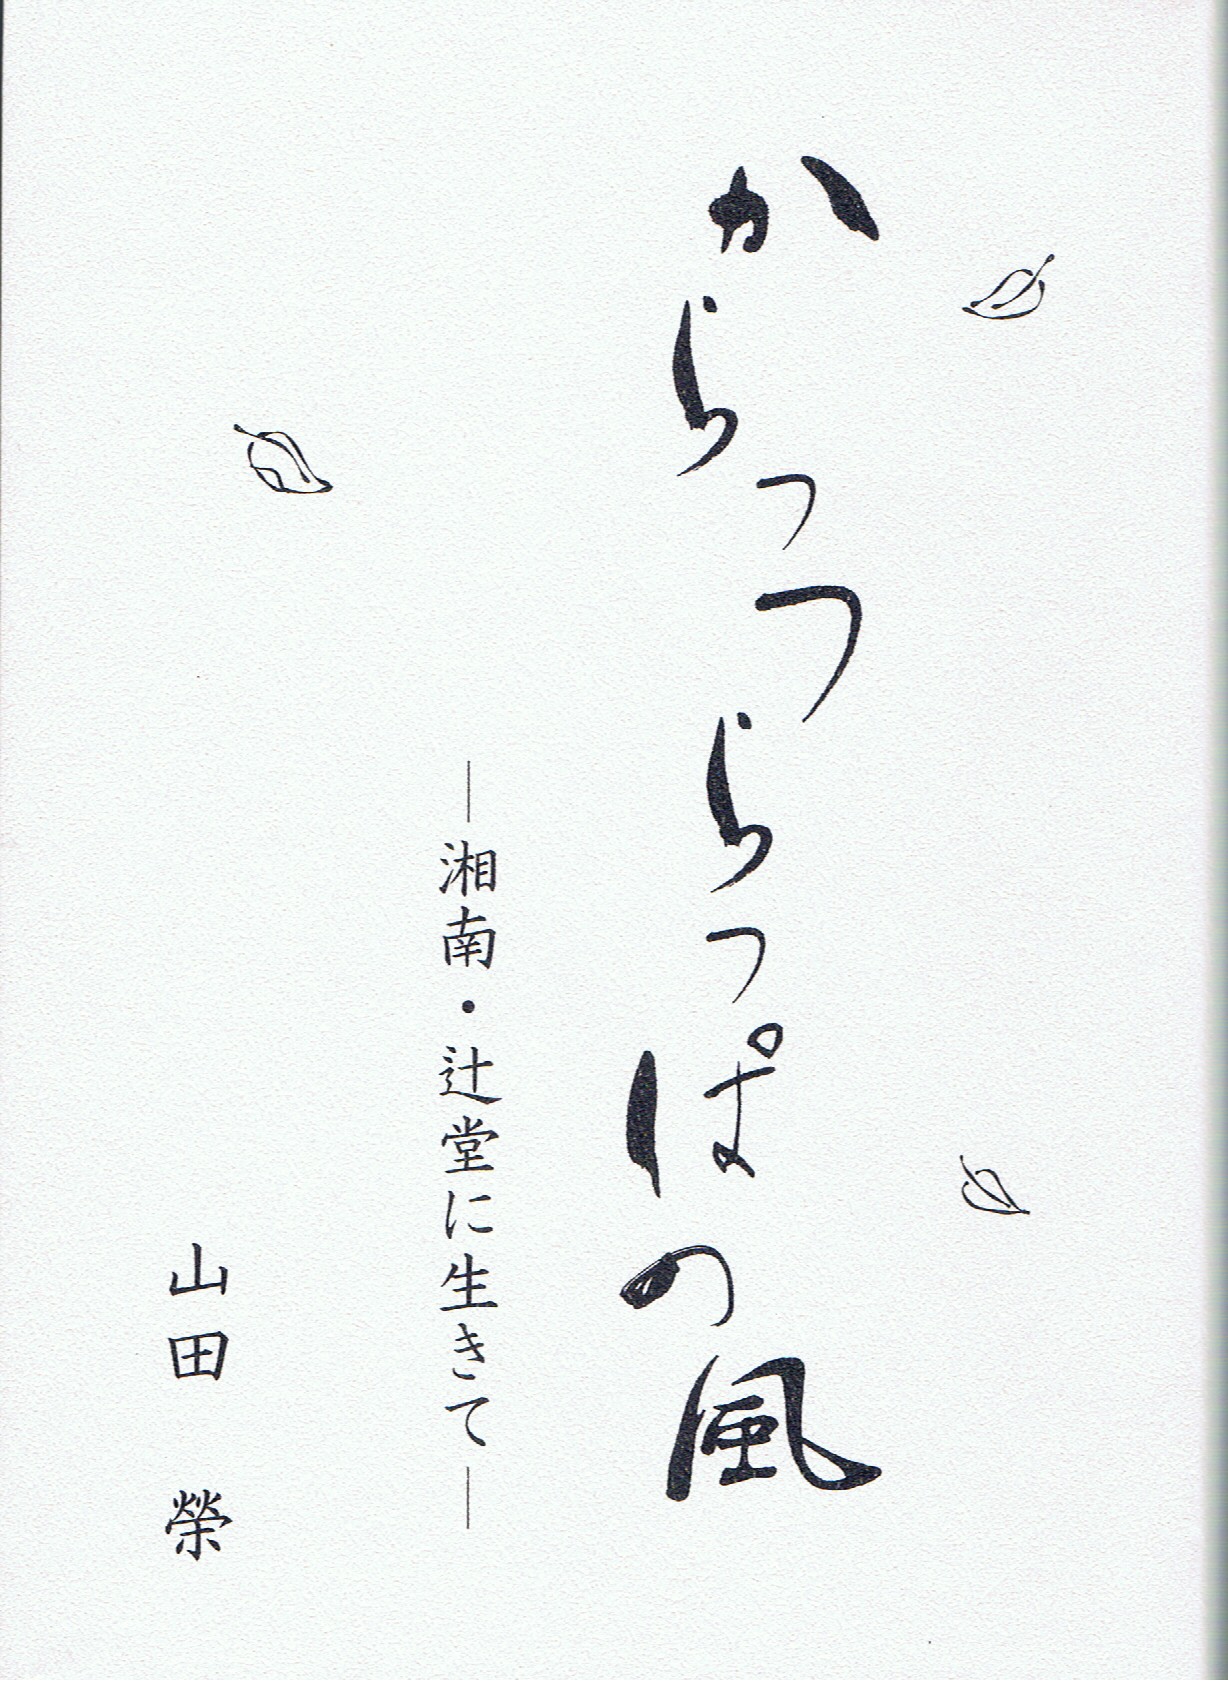 からっつらっぱの風
―湘南・辻堂に生きて―
山田 榮